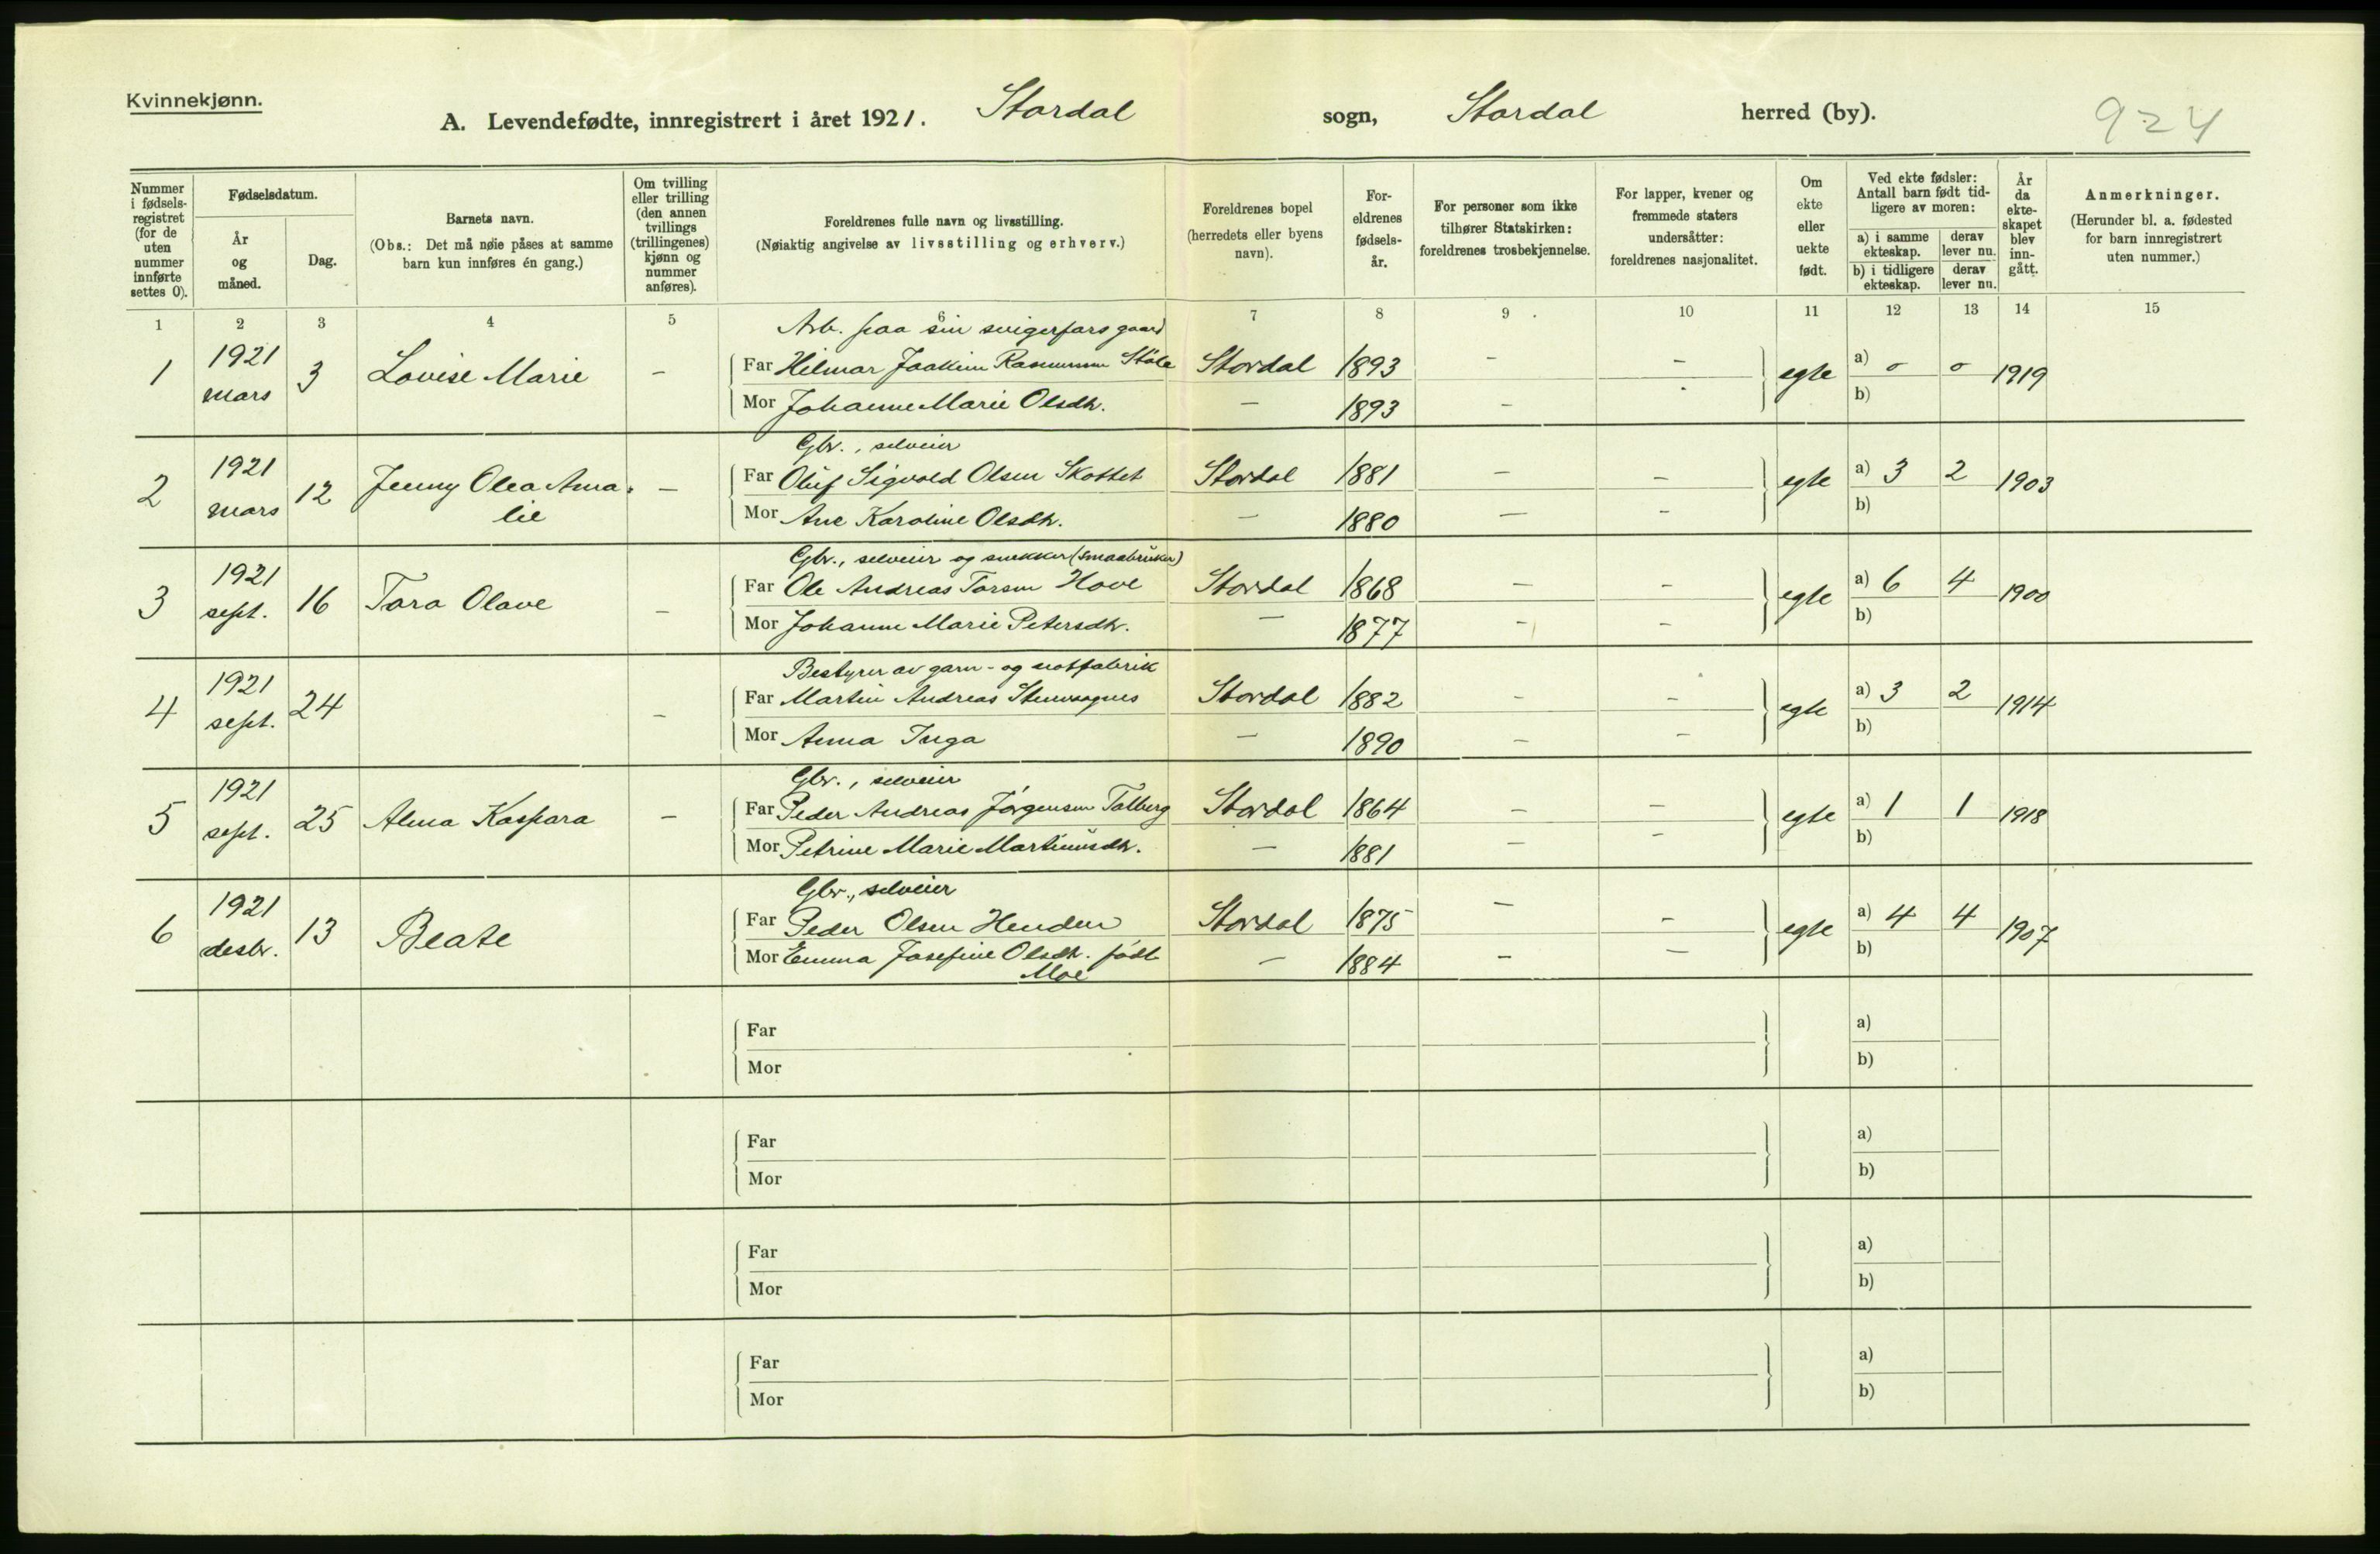 Kvinnekjønn.
A. Levendefødte, innregistrert i året 1921. Stordal sogn, Stordal herred (by). 924
Nummer i fødselsregistret (for de uten nummer innførte settes 0).
Fødselsdatum.
År og måned.
Dag.
Barnets navn.
(Obs.: Det må nøie påses at samme barn kun innføres én gang.)
Om tvilling eller trilling (den annen tvillings (trillingenes) kjønn og nummer anføres).
Foreldrenes fulle navn og livsstilling.
(Nøiaktig angivelse av livsstilling og erhverv.)
Foreldrenes bopel (herredets eller byens navn).
Foreldrenes fødselsår.
For personer som ikke tilhører Statskirken: foreldrenes trosbekjennelse.
For lapper, kvener og fremmede staters undersåtter: foreldrenes nasjonalitet.
Om ekte eller uekte født.
Ved ekte fødsler: Antall barn født tidligere av moren:
a) i samme ekteskap. derav lever nu.
b) i tidligere ekteskap. derav lever nu.
År da ekteskapet blev inngått.
Anmerkninger.
(Herunder bl. a. fødested for barn innregistrert uten nummer.)
1 2 3 4 5 6 7 8 9 10 11 12 13 14 15
Arb. paa sin svigerfars gaard
1 1921 mars 3 Lovise Marie – Far Hilmar Joakim Rasmussen Støle Stordal 1893 – – egte a) 0 0 1919
Mor Johanne Marie Olsdtr. – 1893 – - b)
Gbr., selveier
2 1921 mars 12 Jenny Olea Ama- lie – Far Oluf Sigvald Olsen Skottet Stordal 1881 – – egte a) 3 2 1903
Mor Ane Karoline Olsdtr. – 1880 – – b)
Gbr., selveier og snekker (smaabruker)
3 1921 sept. 16 Tora Olave – Far Ole Andreas Torsen Hove Stordal 1868 – – egte a) 6 4 1900
Mor Johanne Marie Petersdtr. – 1877 – – b)
Bestyrer av garn- og notfabrik
4 1921 sept. 24 – Far Martin Andreas Stordal 1882 – – egte a) 3 2 1914
Mor Anna Inga – 1890 – – b)
Gbr., selveier
5 1921 sept. 25 Alma Kaspara – Far Peder Andreas Jørgensen Talberg Stordal 1864 – – egte a) 1 1 1918
Mor Petrine Marie Martinusdtr. – 1881 – – b)
Gbr., selveier
6 1921 desbr. 13 Beate Far Peder Olsen Henden Stordal 1875 – – egte a) 4 4 1907
Mor Emma Josefine Olsdtr. født Moe – 1884 – – b)
Far a)
Mor b)
Far a)
Mor b)
Far a)
Mor b)
Far a)
Mor b)